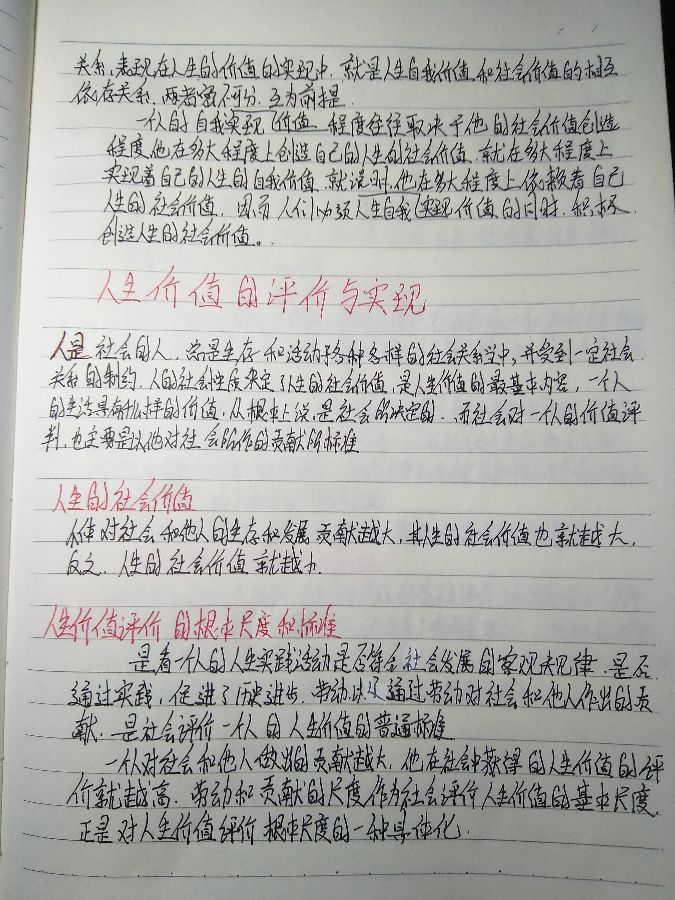 关系，表现在人生的价值的实现中，就是人生自我价值和社会价值的相互
依存关系，两者密不可分，互为前提.
一个人的自我实现了价值 程度往往取决于他的社会价值创造
程度,他在多大程度上创造自己的人生的社会价值，就在多大程度上
实现着自己的人生的自我价值 就说明,他在多大程度上依赖着自己
人生的社会价值，因而人们必须人生自我实现价值的同时，积极
创造人生的社会价值。
人生价值的评价与实现
人是社会的人，总是生存和活动于各种各样的社会关系当中，并受到一定社会
关系的制约，人的社会性质决定了人生的社会价值，是人生价值的最基本内容，一个人
的生活具有什么样的价值，从根本上说，是社会所决定的，而社会对一个人的价值评
判，也主要是以他对社会所作的贡献所标准
人生的社会价值
个体对社会和他人的生存和发展贡献越大，其人生的社会价值也就越大，
反之，人生的社会价值就越小.
人生价值评价的根本尺度和标准
是看一个人的人生实践活动是否符合社会发展的客观规律，是否
通过实践，促进了历史进步，劳动以及通过劳动对社会和他人作出的贡
献，是社会评价一个人的人生价值的普遍标准
一个人对社会和他人做出的贡献越大，他在社会中获得的人生价值的评
价就越高，劳动和贡献的尺度作为社会评价人生价值的基本尺度，
正是对人生价值评价根本尺度的一种具体化.